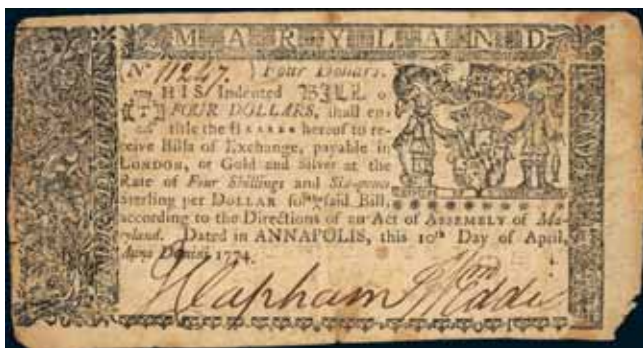 MARYLAND
No 11247. Four Dollars.
THIS Indented BILL o
FOUR DOLLARS, shall en-
title the BEARER hereof to re-
ceive Bills of Exchange, payable in
LONDON, or Gold and Silver at the
Rate of Four Shillings and Six-pence
Sterling per DOLLAR for the said Bill,
according to the Directions of an Act of ASSEMBLY of Ma-
ryland. Dated in ANNAPOLIS, this 10th Day of April,
Anno Domini 1774.
J Clapham Wm Eddis